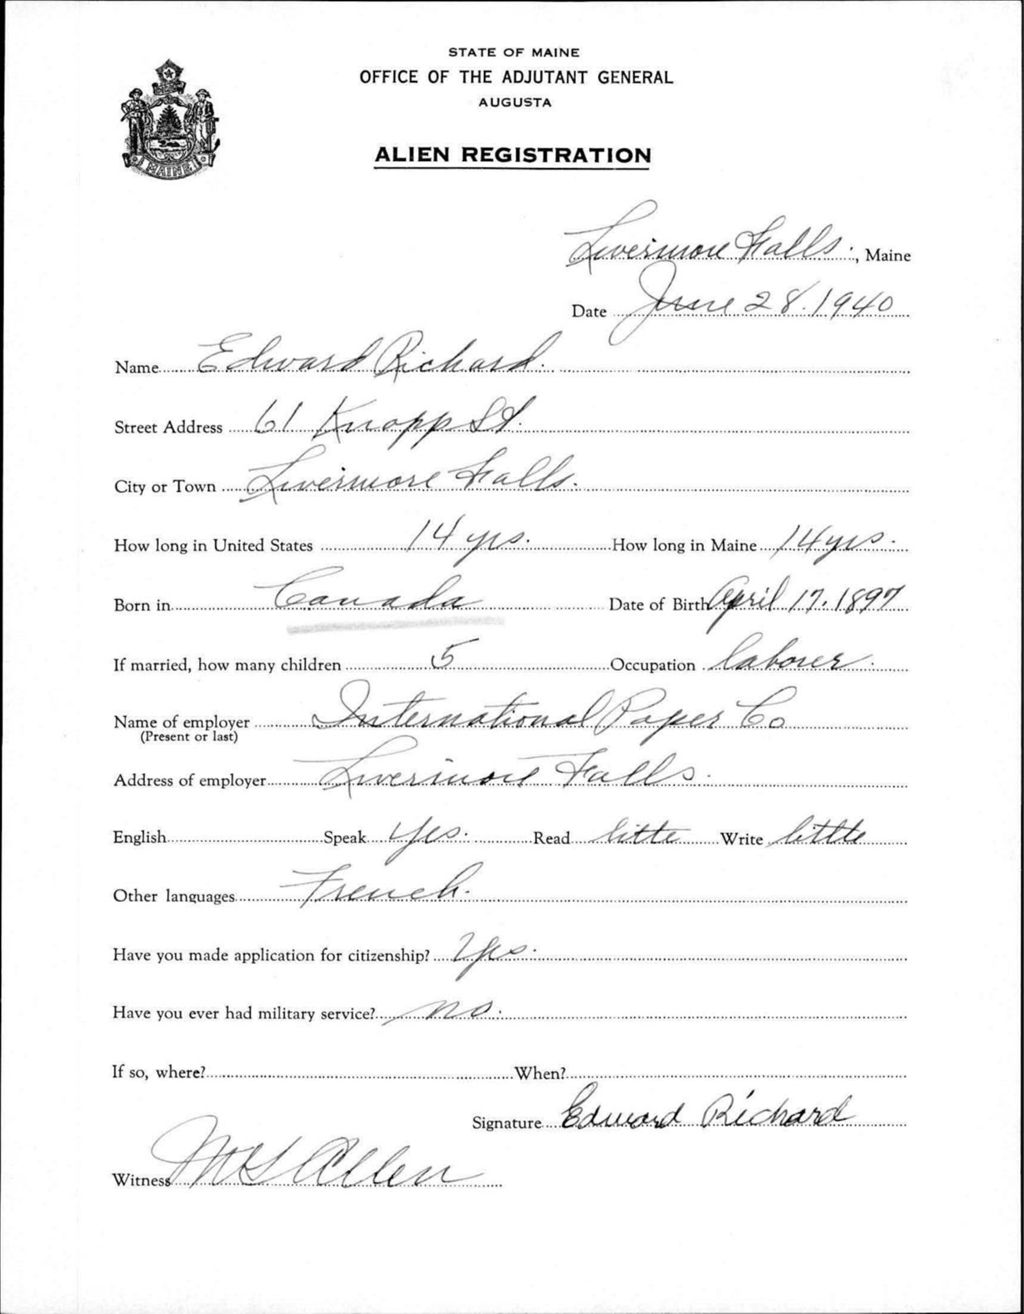 STATE OF MAINE
OFFICE OF THE ADJUTANT GENERAL
AUGUSTA
ALIEN REGISTRATION
MAINE
Livermore Falls., Maine
Date June 28. 1940
Name Edward Richard.
Street Address 61 Knapp St.
City or Town Livermore Falls.
How long in United States 14 yrs. How long in Maine 14 yrs.
Born in Canada Date of Birth April 17. 1897
If married, how many children 5 Occupation laborer.
Name of employer International Paper Co
(Present or last)
Address of employer Livermore Falls.
English Speak yes. Read litte Write little
Other languages French.
Have you made application for citizenship? Yes.
Have you ever had military service? no.
If so, where? When?
Signature Edward Richard
Witness Allen